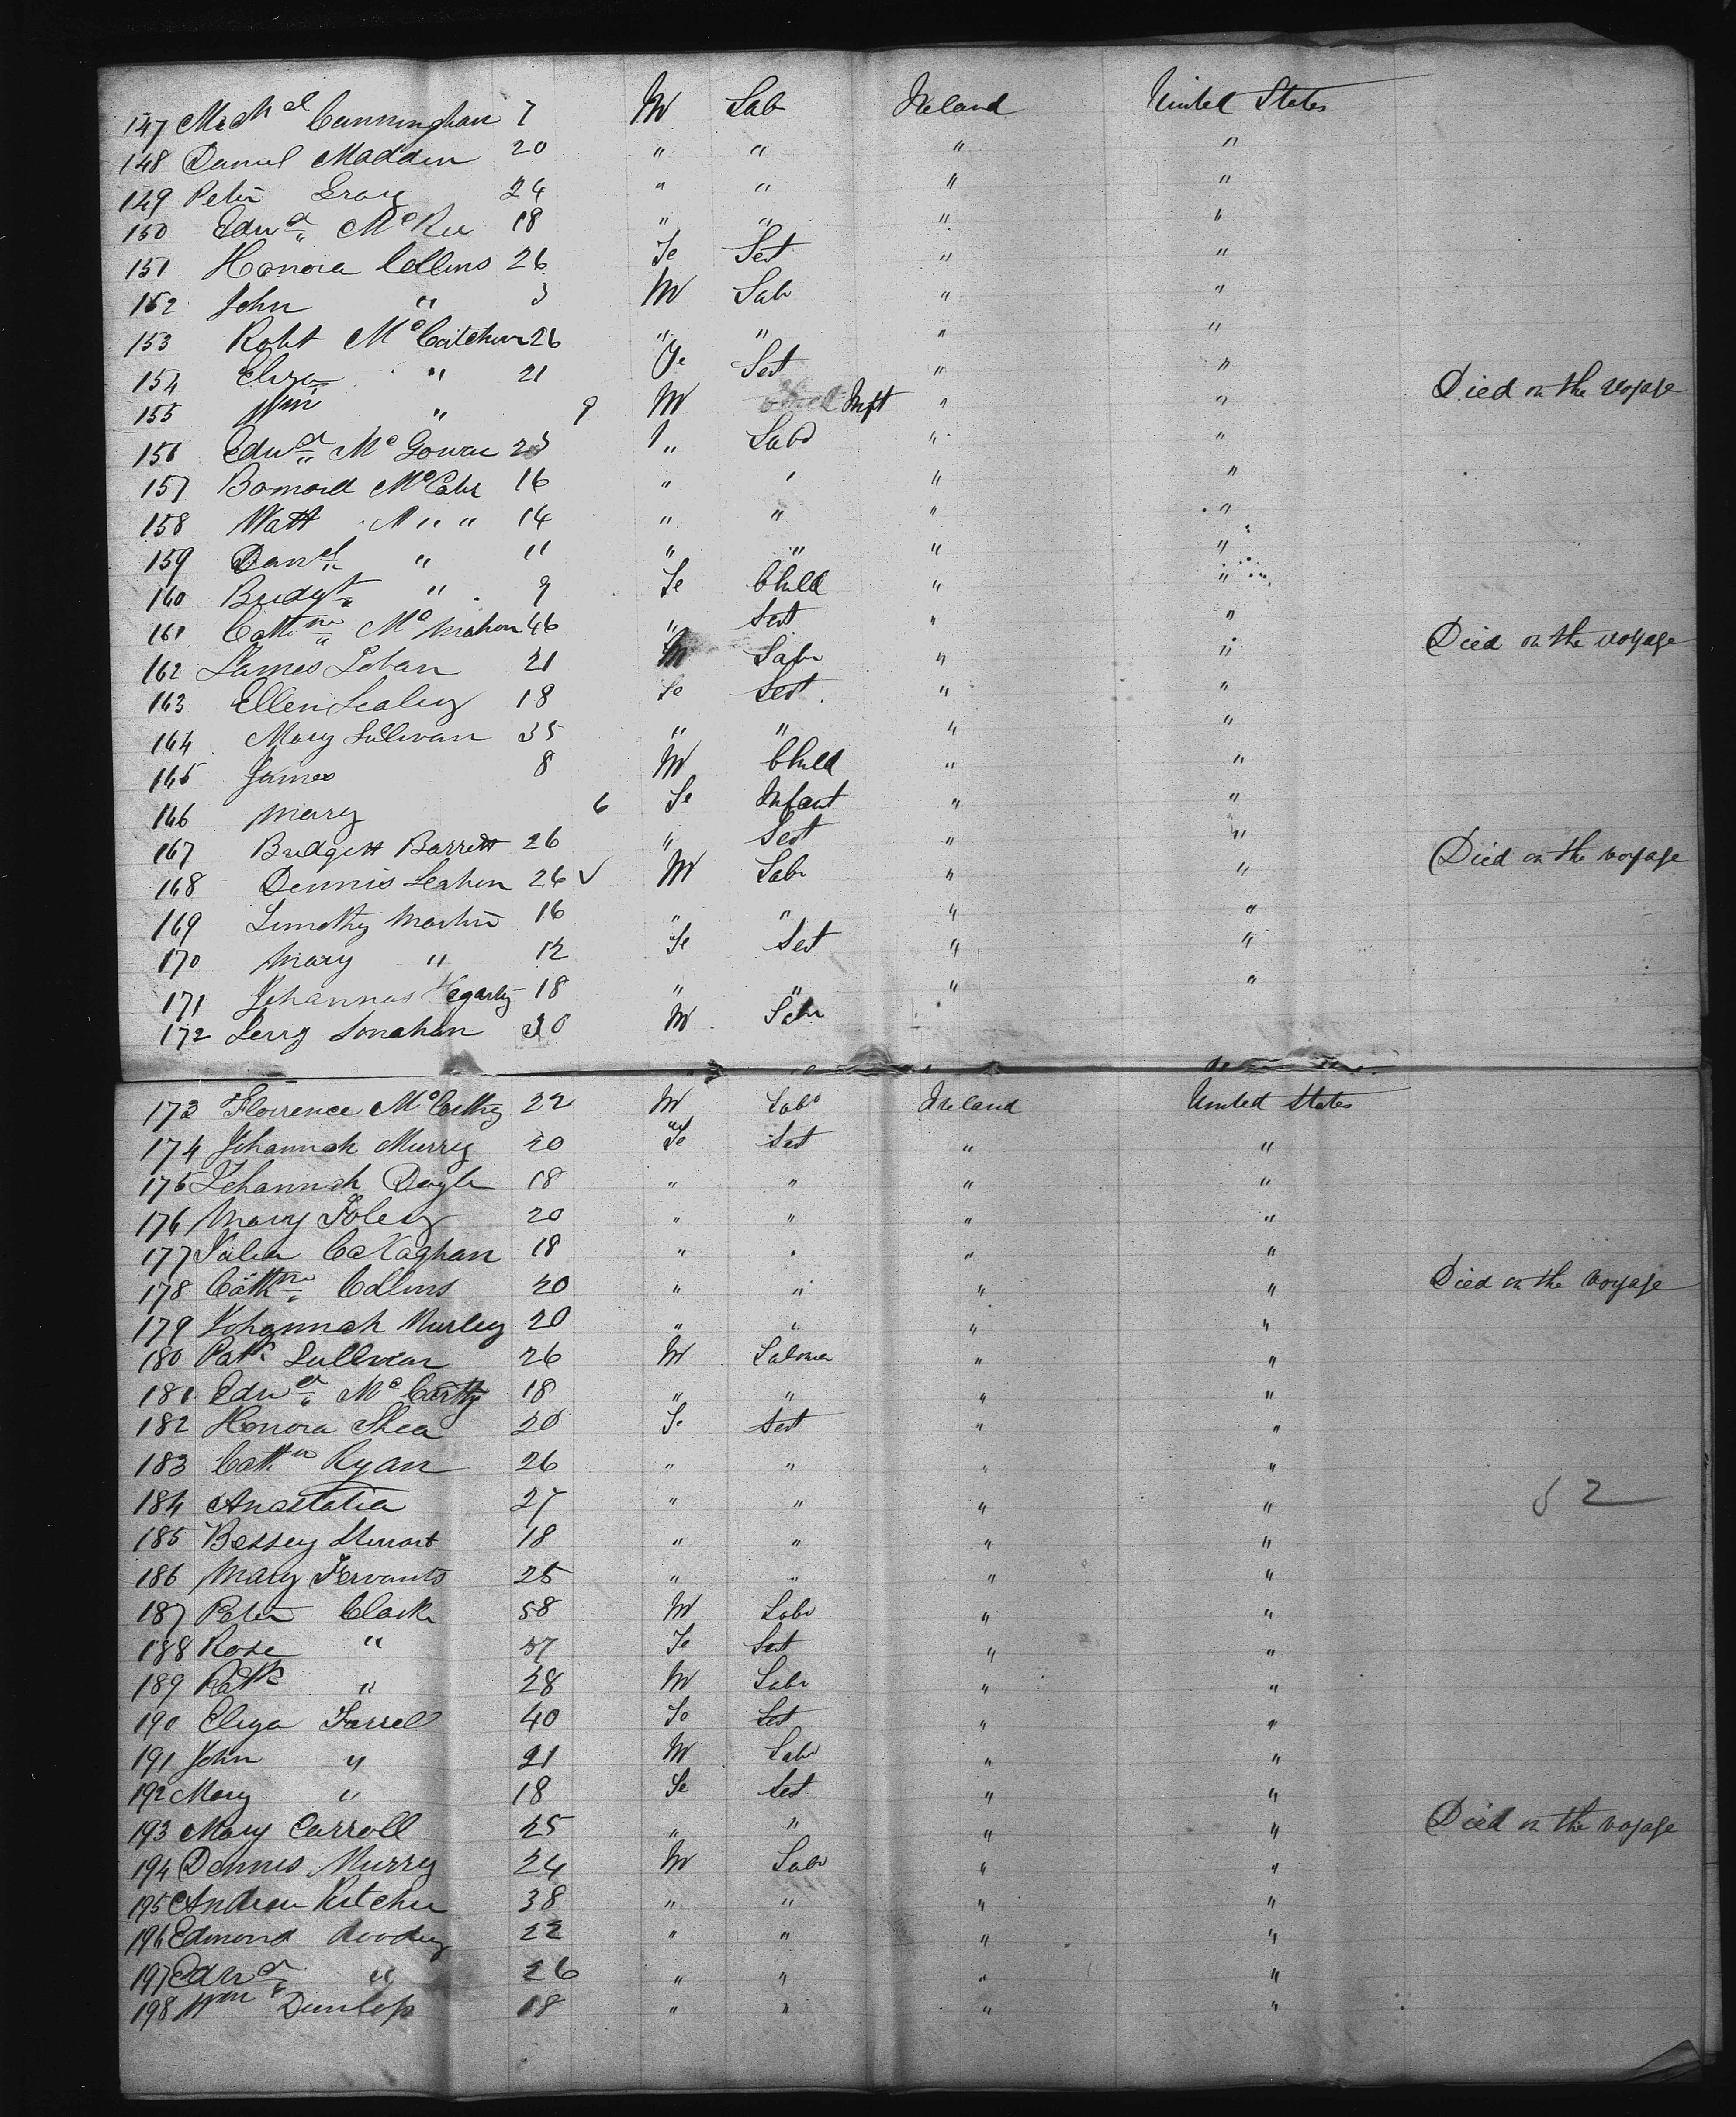 147 Mich al Cunningham 7 M Lab Ireland United States
148 Daniel Madden 20 " " " "
149 Peter Gray 24 " " " "
150 Edwd McKee 18 " " " "
151 Honora Collins 26 Fe Sert " "
152 John " 3 M Lab " "
153 Robt McCutcheon 26 " " " "
154 Eliza " 21 Fe Sert " "
155 Wm " 9 M Inft " " Died on the voyage
156 Edwd McGowan 23 " Labr " "
157 Barnard McCabe 16 " " " "
158 Watt " " 14 " " " "
159 Danel " 11 " " " "
160 Bridgt " 9 Fe Child " "
161 Cathne McMahon 46 " Sert " "
162 James 21 M Labr " " Died on the voyage
163 Ellen 18 Fe Sert " "
164 Mary Sullivan 35 " " " "
165 James 8 M Child " "
166 Mary 6 Fe Infant " "
167 Bridgett Barrett 26 " Sert " "
168 Dennis Leahen 26 ✓ M Labr " " Died on the voyage
169 Timothy Martin 16 " " " "
170 Mary " 12 Fe Sert " "
171 Johannas Hegarty 18 " " " "
172 Jerry Donahan 30 M Labr
173 Florrence McCarthy 22 M Labr Ireland United States
174 Johannah Murry 20 Fe Sert " "
175 Johannah Doyle 18 " " " "
176 Mary Foley 20 " " " "
177 Julia Callaghan 18 " " " "
178 Cathne Collins 20 " " " " Died on the voyage
179 Johannah Hurley 20 " " " "
180 Patk Sullivan 26 M Labourer " "
181 Edwd McCarthy 18 " " " "
182 Honora Shea 20 Fe Sert " "
183 Cathn Ryan 26 " " " "
184 Anastatia 27 " " " "
185 Bessey Stewart 18 " " " "
186 Mary Servants 25 " " " "
187 Peter Clarke 58 M Labr " "
188 Rose " 57 Fe Sert " "
189 Patk " 28 M Labr " "
190 Eliza Farrell 40 Fe Sert " "
191 John " 21 M Labr " "
192 Mary " 18 Fe Sert " "
193 Mary Carroll 25 " " " " Died on the voyage
194 Dennis Murry 24 M Labr " "
195 Andrew Ritchie 38 " " " "
196 Edmond 22 " " " "
197 Edwd " 26 " " " "
198 Wm Dunlop 18 " " " "